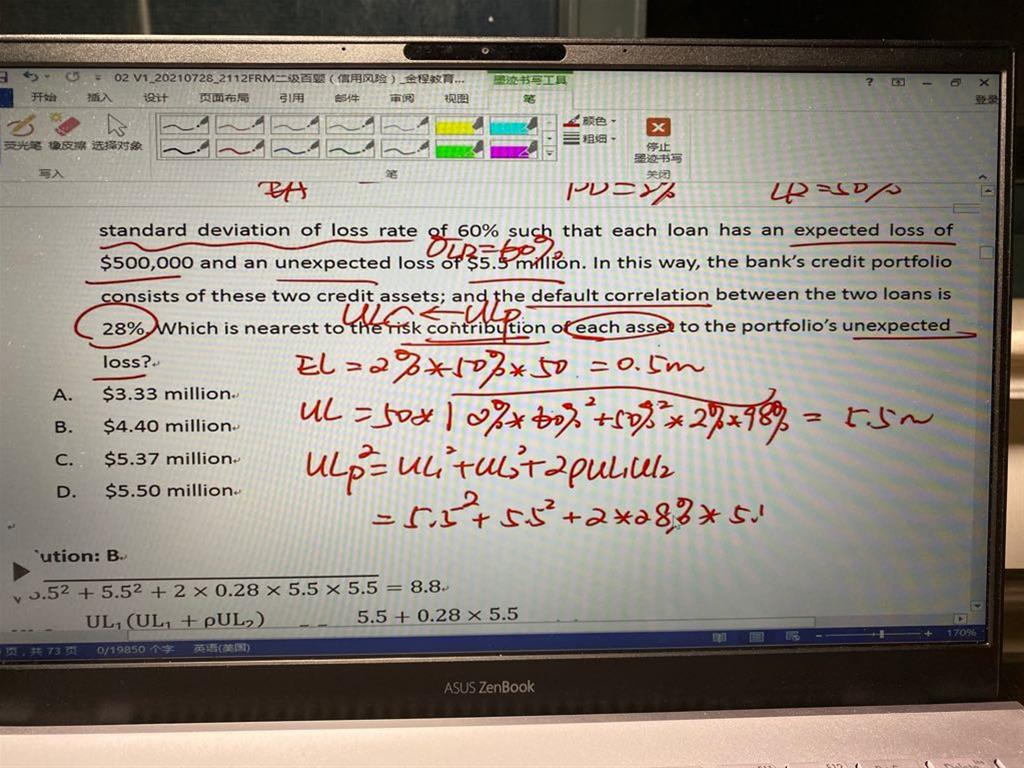 02 V1_20210728_2112FRM二级百题（信用风险）_金程教育...
墨迹书写工具
开始 插入 设计 页面布局 引用 邮件 审阅 视图 笔
登录
荧光笔 橡皮擦 选择对象
颜色
粗细
停止
墨迹书写
写入 笔 关闭
PD=2% LR=50%
standard deviation of loss rate of 60% such that each loan has an expected loss of
σLR=60%
$500,000 and an unexpected loss of $5.5 million. In this way, the bank's credit portfolio
consists of these two credit assets; and the default correlation between the two loans is
ULC ← ULp
28%. Which is nearest to the risk contribution of each asset to the portfolio's unexpected
loss?
EL = 2%*50%*50 = 0.5m
A. $3.33 million
UL = 50*√2%*60%²+50%²*2%*98% = 5.5m
B. $4.40 million
C. $5.37 million
ULp²=UL₁²+UL₂²+2ρUL₁UL₂
D. $5.50 million
= 5.5²+5.5²+2*28%*5.
ution: B
5.5² + 5.5² + 2 × 0.28 × 5.5 × 5.5 = 8.8
UL₁(UL₁ + ρUL₂) 5.5 + 0.28 × 5.5
页，共 73 页 0/19850 个字 英语(美国) 170%
ASUS ZenBook
Delete